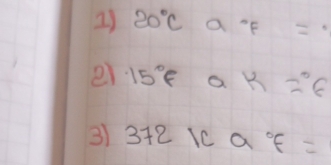 1) 20°C a °F =
2) 15°F a K =°F
3) 372 K a °F =